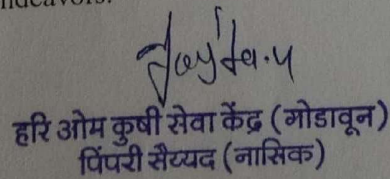 हरि ओम कुषी सेवा केंद्र (गोडावून)
पिंपरी सैय्यद (नासिक)